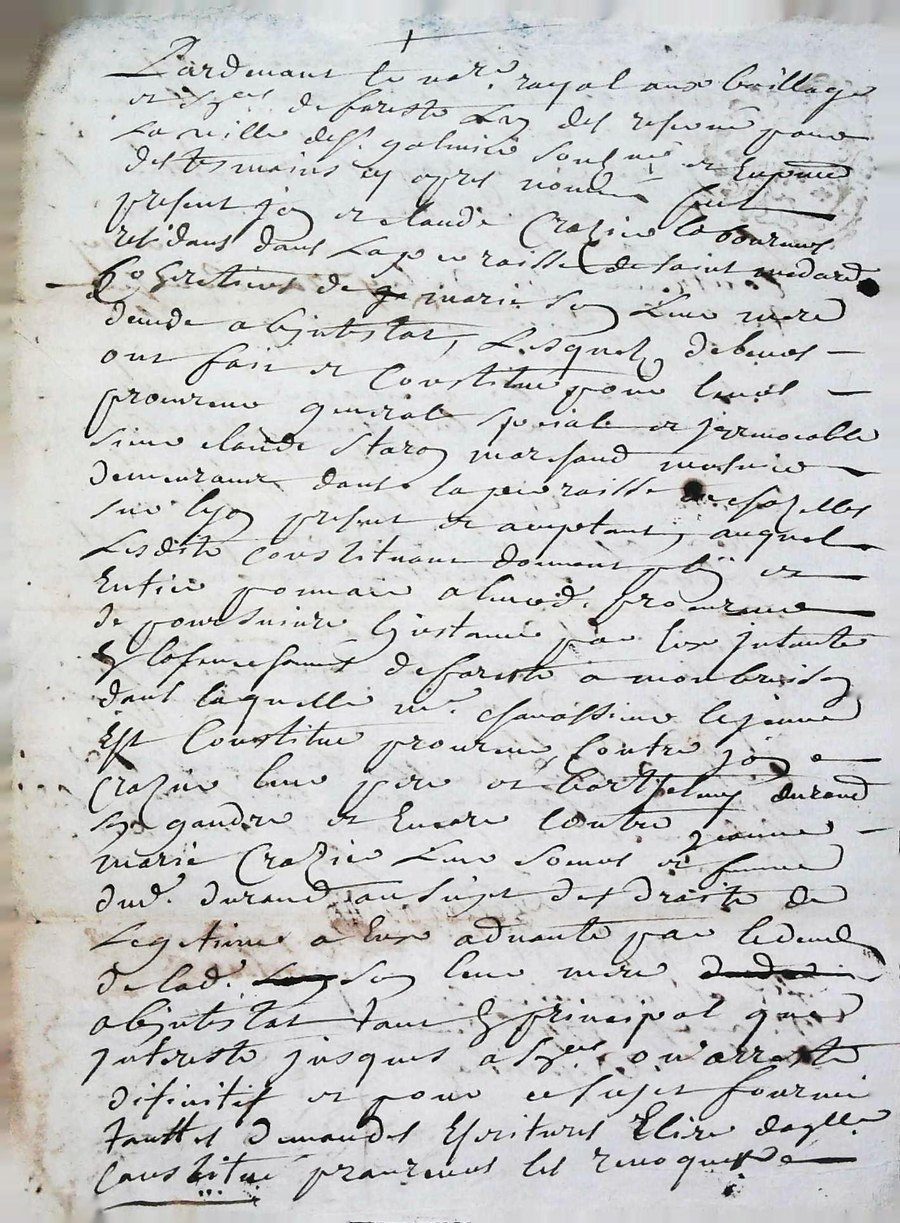 Pardevant le no.re royal aux bailliage
et de foreste des reserué pour
la ville de st. galmier soub.né et en pnce
des tesmoins cy apres nommés furt
present jean et claude Crozier laboureurs
residans dans la parroisse de saint medard
heretiers de marie leur mere
decedée abjntestat, Lesquels debeues
ont fair et Constitué pour leurs
procureur general speciale et jrrevocable
sieur claude marchand
demeurant dans la parroisse de chazelles
sur lyon present et aceptant, auquel
Lesdits Constituant donnent plain et
Entier pouvoir aleurd. procureur
de poursuivre Ljnstance par Eux jntantée
En la senechaussée de foreste a montbrison
dans laquelle me. chavassieu le jeune
Est Constitué procureur, Contre jean
Crozier leur pere et barthelemy durand
son gendre et Encore Contre jeanne
marie Crozier leur soeur et femme
dud. durand au sujet des droits de
Legitime a Eux advenuts par le deced
de lad. leur mere
abjntestat tant En principal que
jnterests jusques a ou arreste
difinitif et pour ce sujet fournir
touttes demandes Escritures Elire domlle
Constitué procureurs les revoquer